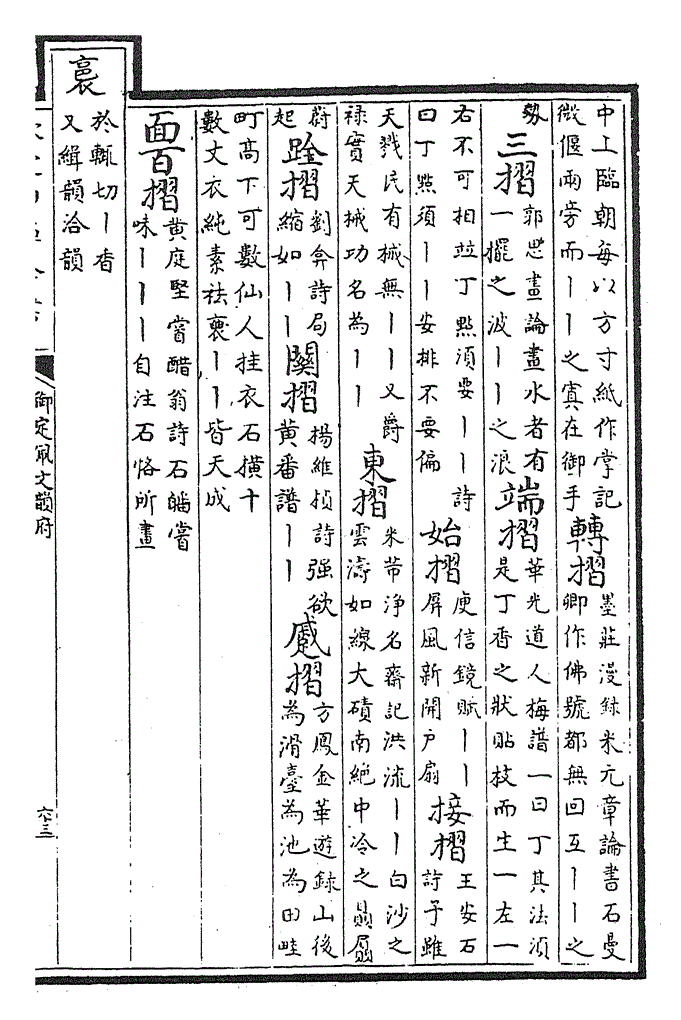 中上臨朝每以方寸紙作掌記
微偃兩旁而丨丨之寘在御手
轉摺
墨莊漫錄米元章論書石曼
卿作佛號都無回互丨丨之
勢
三摺
郭思畫論畫水者有
一擺之波丨丨之浪
端摺
華光道人梅譜一曰丁其法須
是丁香之狀貼枝而生一左一
右不可相竝丁㸃須要丨丨詩
曰丁㸃須丨丨安排不要偏
始摺
庾信鏡賦丨丨
屏風新開戶扇
接摺
王安石
詩子雖
天戮民有械無丨丨又爵
祿實天械功名為丨丨
東摺
米芾淨名齋記洪流丨丨白沙之
雲濤如線大磧南絶中冷之贔屭
蔚
起
跧摺
劉弇詩局
縮如丨丨
闗摺
楊維楨詩强欲
黄番譜丨丨
蹙摺
方鳳金華遊錄山後
為滑臺為池為田畦
町高下可數仙人挂衣石横十
數丈衣純素袪褏丨丨皆天成
面百摺
黄庭堅嘗醋翁詩石皢嘗
味丨丨丨自注石恪所畫
裛
於輒切丨香
又緝韻洽韻
御定佩文韻府
六三